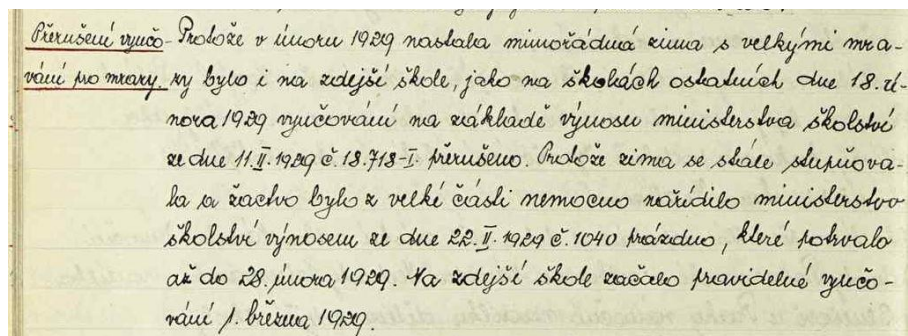 Přerušení vyučo- Protože v únoru 1929 nastala mimořádná zima s velkými mra-
vání pro mrazy. zy bylo i na zdejší škole, jako na školách ostatních dne 18. ú-
nora 1929 vyučování na základě výnosu ministerstva školství
ze dne 11.II.1929 č. 18.718-I. přerušeno. Protože zima se stále stupňova-
la a žactvo bylo z velké části nemocno nařídilo ministerstvo
školství výnosem ze dne 22.II.1929 č. 1040 prázdno, které potrvalo
až do 28. února 1929. Na zdejší škole začalo pravidelné vyučo-
vání 1. března 1929.